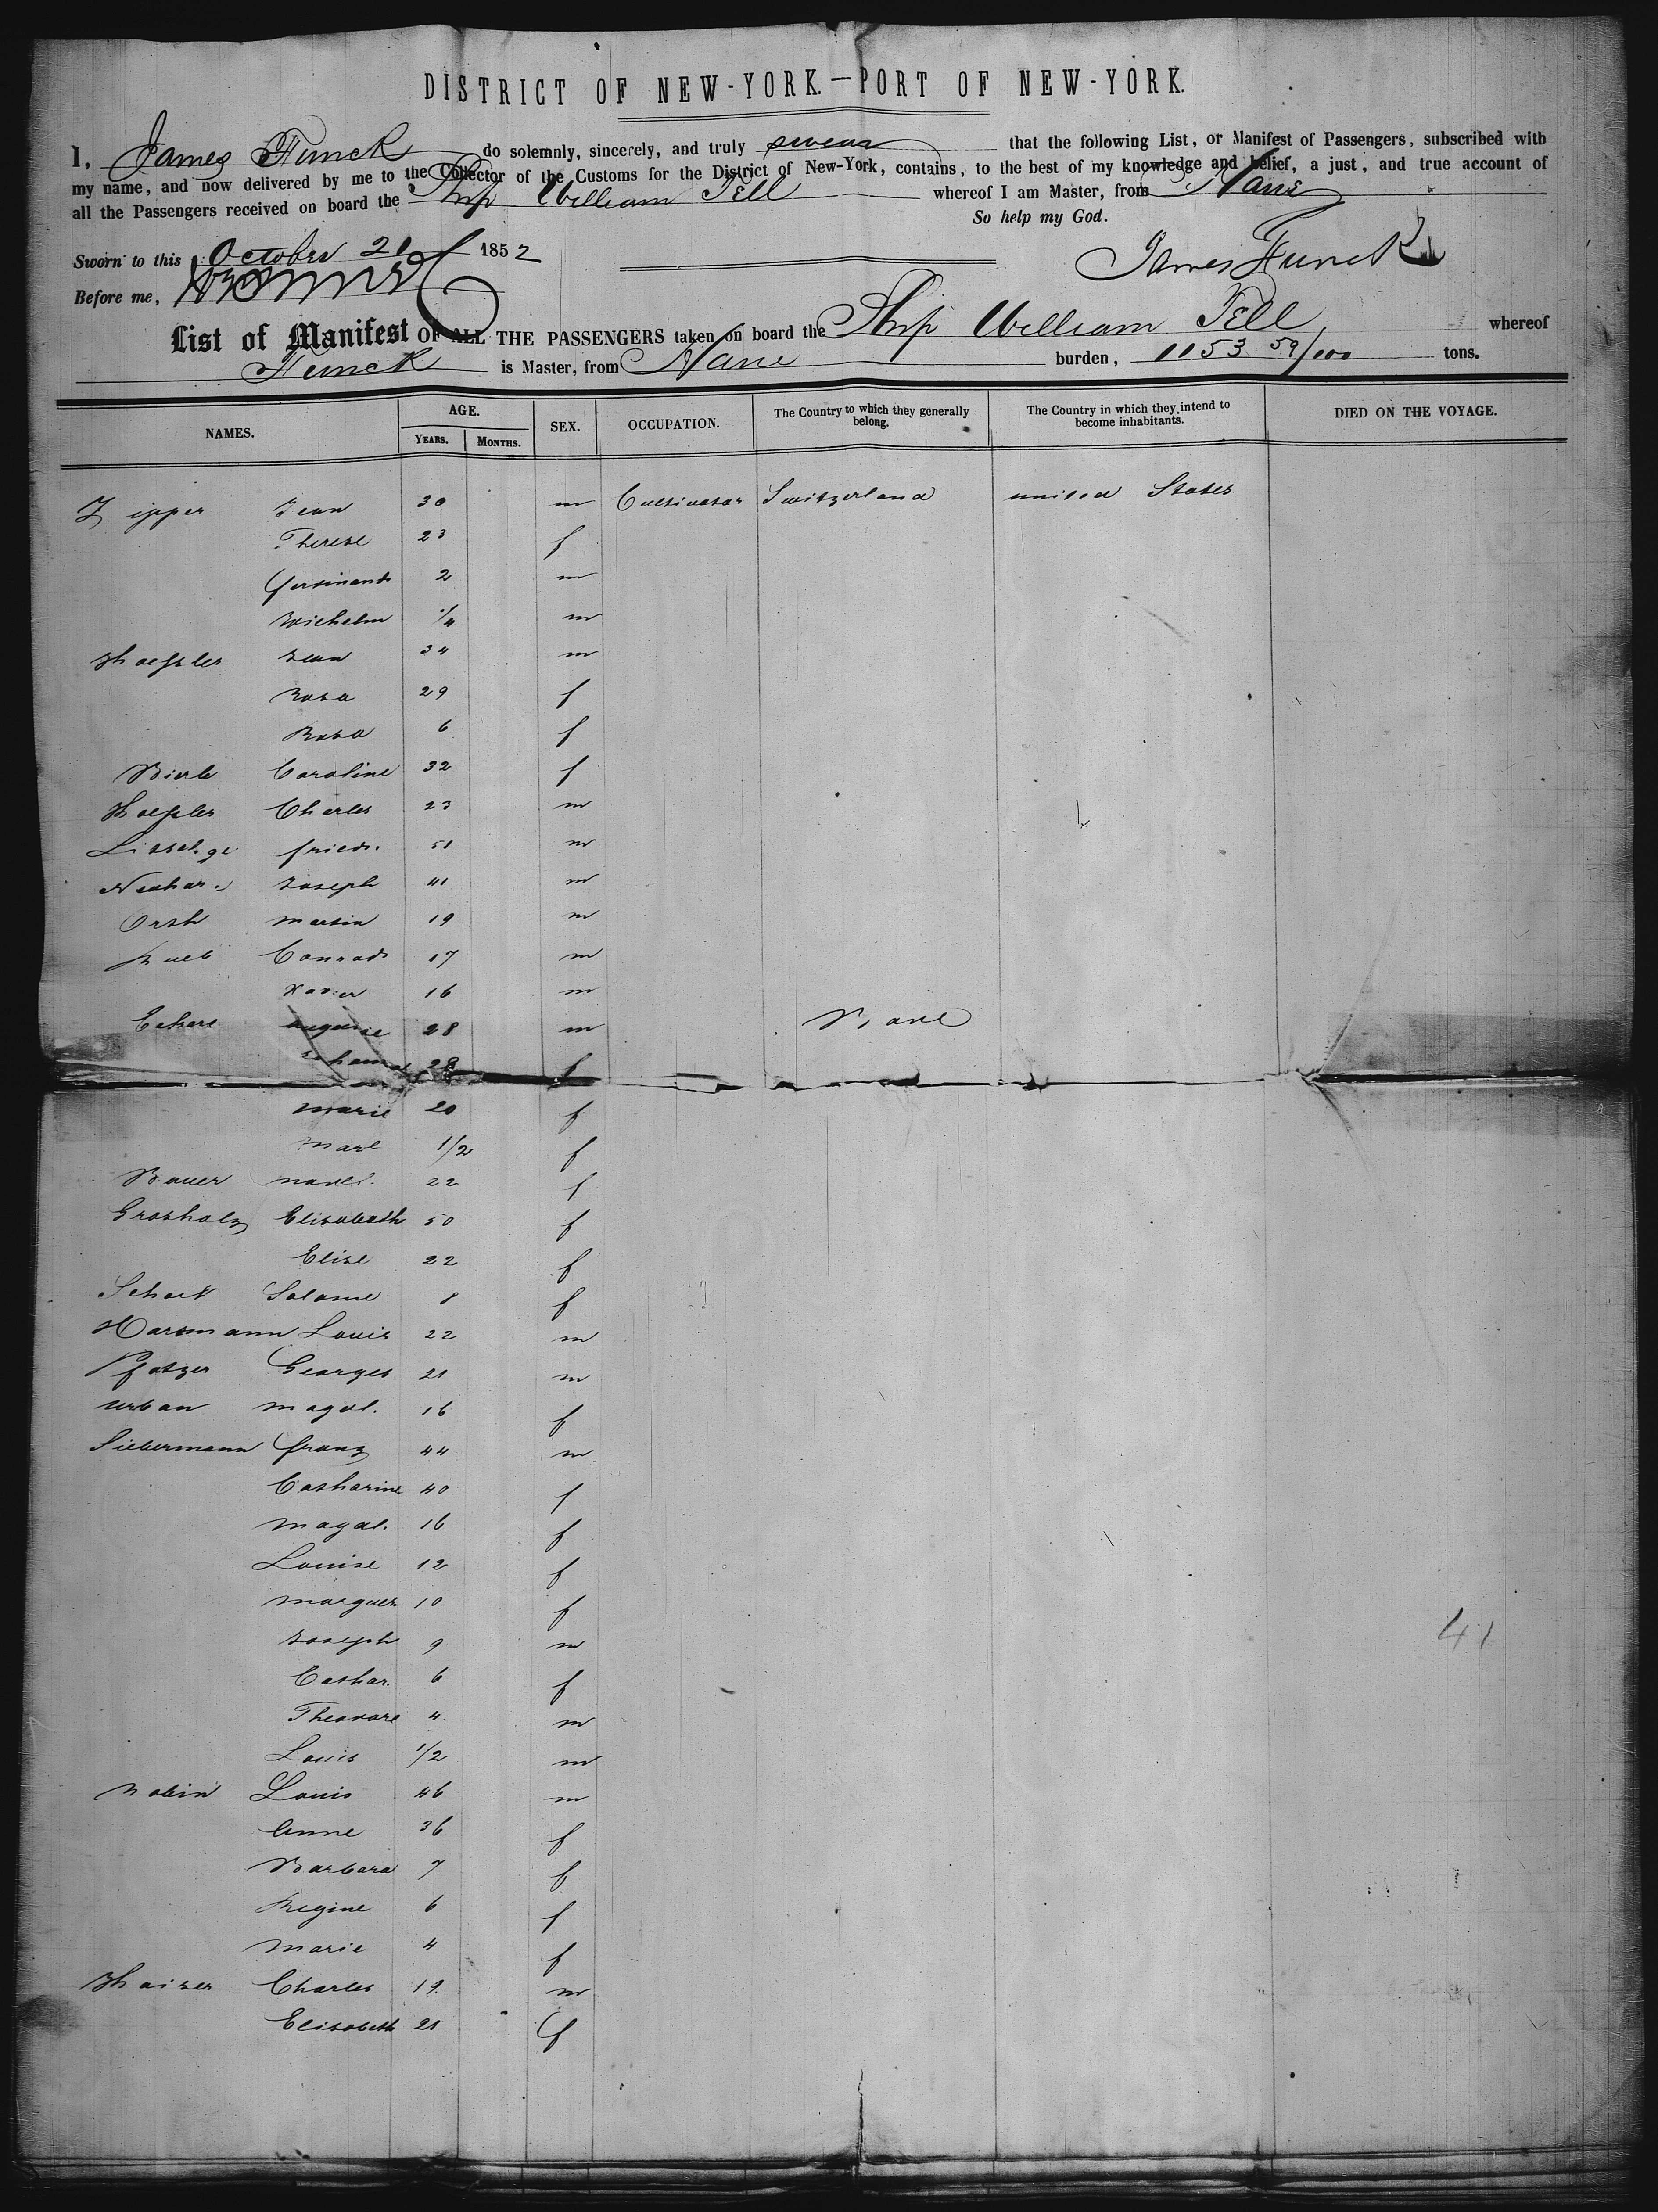 DISTRICT OF NEW-YORK.—PORT OF NEW-YORK.
I, James Funck do solemnly, sincerely, and truly swear that the following List, or Manifest of Passengers, subscribed with
my name, and now delivered by me to the Collector of the Customs for the District of New-York, contains, to the best of my knowledge and belief, a just, and true account of
all the Passengers received on board the Ship William Tell whereof I am Master, from Havre
So help my God.
Sworn to this October 21 1852
James Funck
Before me,
List of Manifest OF ALL THE PASSENGERS taken on board the Ship William Tell, whereof
Funck is Master, from Havre burden, 1153 59/100 tons.
NAMES. AGE. YEARS. MONTHS. SEX. OCCUPATION. The Country to which they generally belong. The Country in which they intend to become inhabitants. DIED ON THE VOYAGE.
Zipper Jean 30 m Cultivator Switzerland united States
Therese 23 f
ferdinand 2 m
Wilhelm 1/4 m
Jean 34 m
Rosa 29 f
Rosa 6 f
Caroline 32 f
Charles 23 m
friedr. 51 m
Joseph 41 m
Orth martin 19 m
Rueb Conrad 17 m
Xavier 16 m
28 m Bade
28 f
marie 20 f
marie 1/2 f
Bauer 22 f
Grosholz Elisabeth 50 f
Elise 22 f
Schott Salome 8 f
Hartmann Louis 22 m
Pfotzer Georges 21 m
urban magdl. 16 f
Siebermann franz 44 m
Catharine 40 f
magdl. 16 f
Louise 12 f
marguer. 10 f
Joseph 9 m
Cathar. 6 f
Theodore 4 m
Louis 1/2 m
Robin Louis 46 m
Anne 36 f
Barbara 7 f
Regine 6 f
marie 4 f
Charles 19 m
Elisabeth 21 f
41